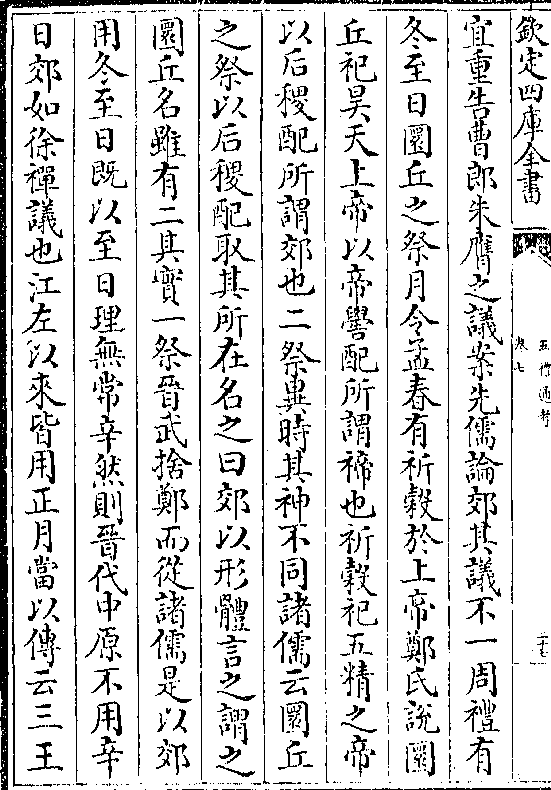 欽定四庫全書
五禮通考
卷七
宜重告曹郎朱膺之議案先儒論郊其議不一周禮有
冬至日圜丘之祭月令孟春有祈穀於上帝鄭氏說圜
丘祀昊天上帝以帝嚳配所謂禘也祈穀祀五精之帝
以后稷配所謂郊也二祭異時其神不同諸儒云圜丘
之祭以后稷配取其所在名之曰郊以形體言之謂之
圜丘名雖有二其實一祭晉武捨鄭而從諸儒是以郊
用冬至日既以至日理無常辛然則晉代中原不用辛
日郊如徐禪議也江左以來皆用正月當以傳云三王